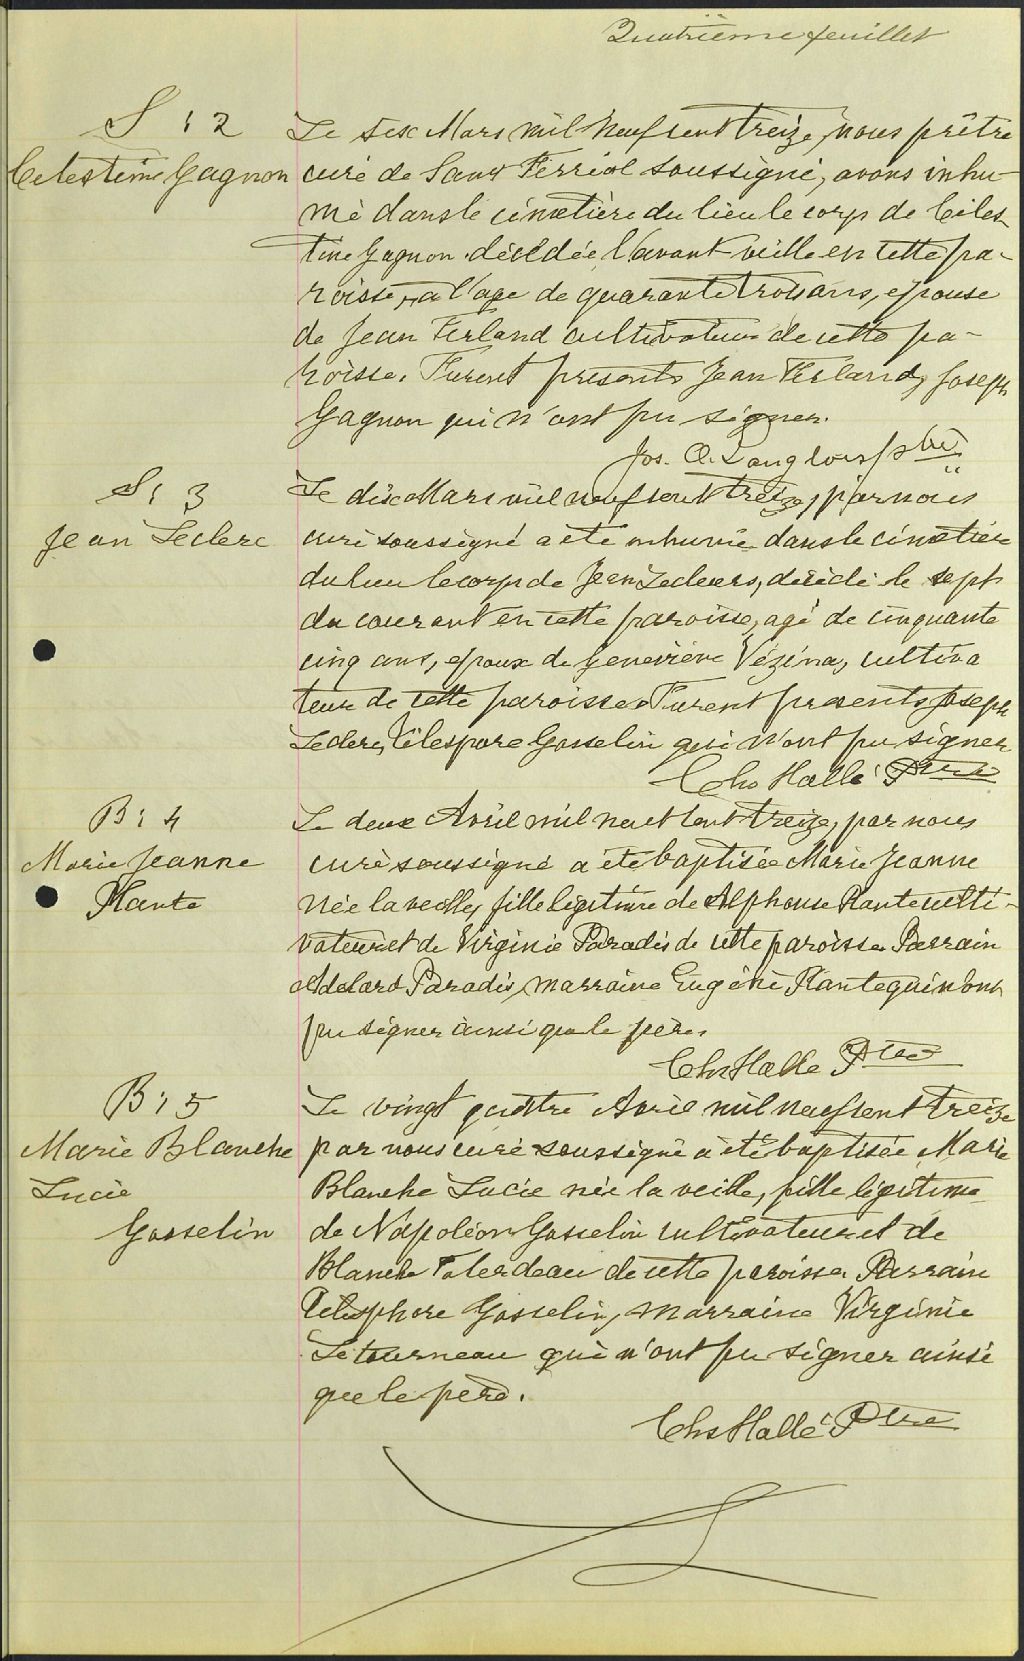 Quatrième feuillet
S : 2
Celestine Gagnon
Le six Mars mil neuf cent treize, nous prêtre
curé de Saint Ferréol soussigné, avons inhu-
mé dans le cimetière du lieu le corps de Céles-
tine Gagnon décédée l'avant veille en cette pa-
roisse, a l'age de quarante trois ans, epouse
de Jean Ferland cultivateur de cette pa-
roisse. Furent présents Jean Ferland, Joseph
Gagnon qui n'ont pu signer.
Jos. O. Langlois ptre
S : 3
Jean Leclerc
Le dix Mars mil neuf cent treize, par nous
curé soussigné a été inhumé dans le cimetière
du lieu le corps de Jean Leclerc, décédé le sept
du courant en cette paroisse, agé de cinquante
cinq ans, epoux de Geneviève Vézina, cultiva
teur de cette paroisse. Furent présents Joseph
Leclerc, Télespore Gosselin qui n'ont pu signer
Chs Hallé Ptre
B : 4
Marie Jeanne
Plante
Le deux Avril mil neuf cent treize, par nous
curé soussigné a été baptisée Marie Jeanne
née la veille, fille légitime de Alphonse Plante culti-
vateur et de Virginie Paradis de cette paroisse. Parrain
Adelard Paradis, marraine Eugénie Plante qui n'ont
pu signer ainsi que le père.
Chs Hallé Ptre
B : 5
Marie Blanche
Lucie
Gosselin
Le vingt quatre Avril mil neuf cent treize
par nous curé soussigné a été baptisée Marie
Blanche Lucie née la veille, fille légitime
de Napoléon Gosselin cultivateur et de
Blanche de cette paroisse. Parrain
Télesphore Gosselin, marraine Virginie
Létourneau qui n'ont pu signer ainsi
que le père.
Chs Hallé Ptre